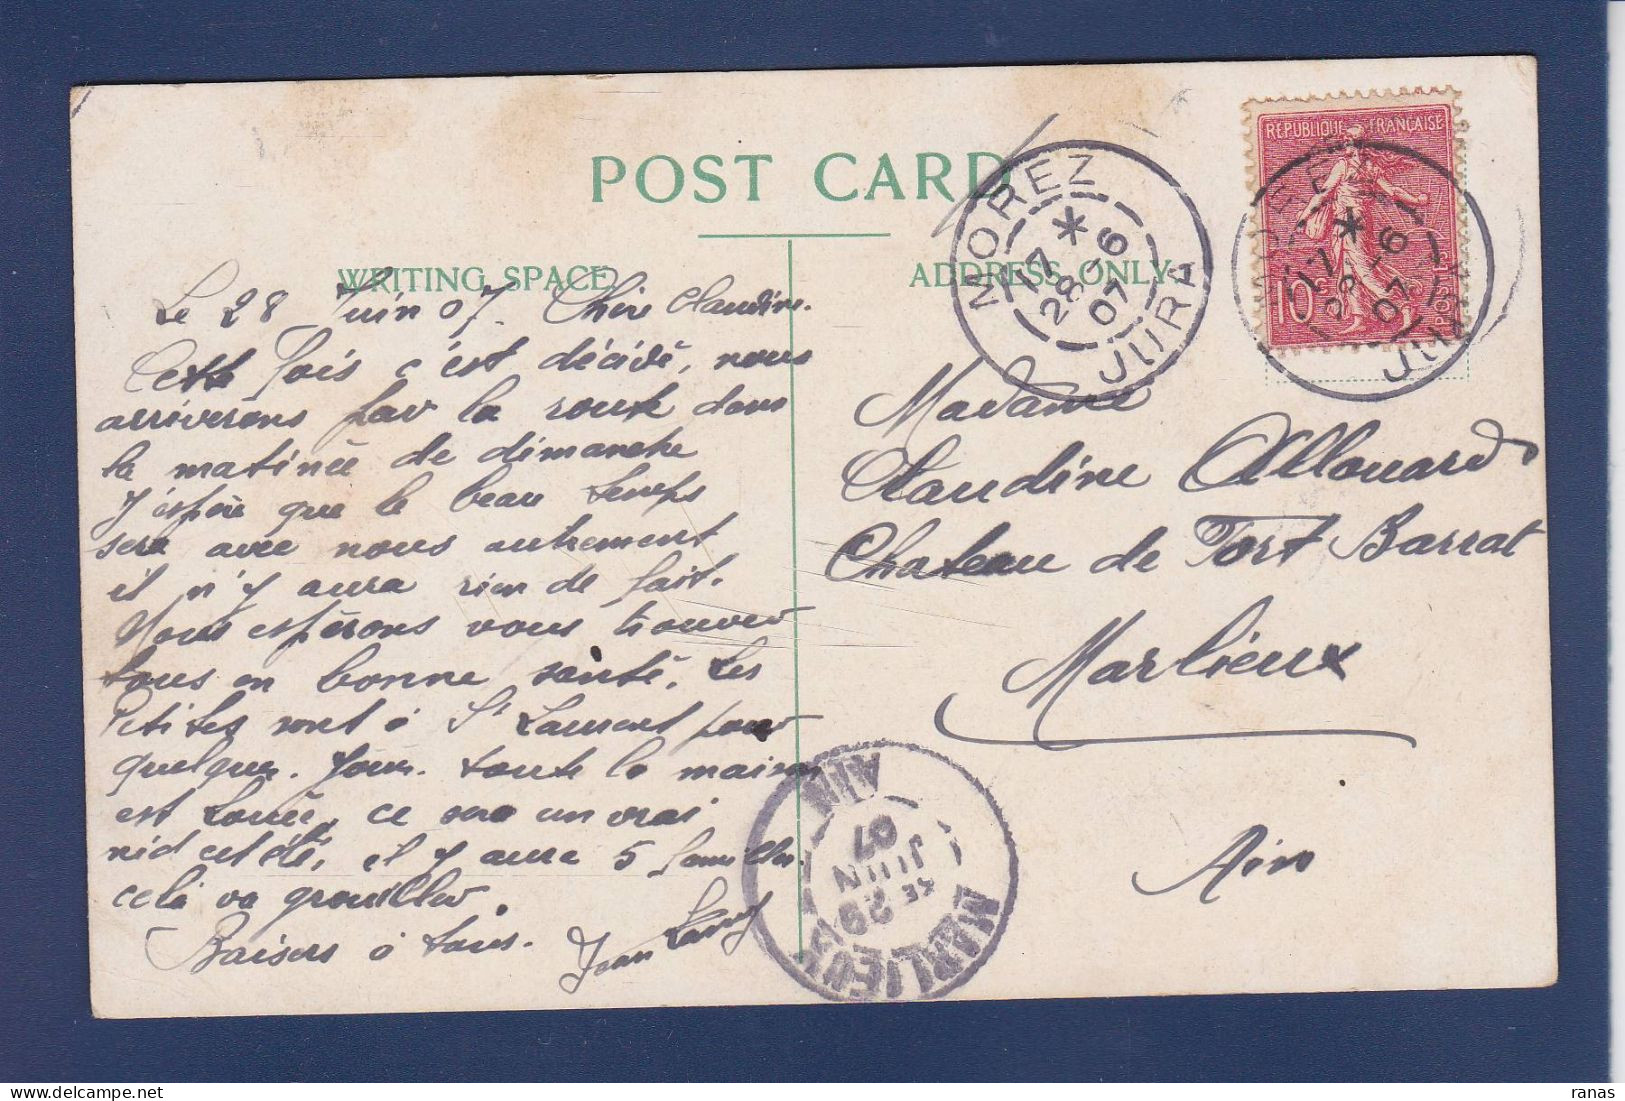 POST CARD
WRITING SPACE
ADDRESS ONLY
Le 28 Juin 07. Chère Claudine.
Cette fois c'est décidé, nous
arriverons par la route dans
la matinée de dimanche
J'espère que le beau temps
sera avec nous autrement
il n'y aura rien de fait.
Nous espérons vous trouver
tous en bonne santé. Les
Petites sont à St Laurent pour
quelques jours. toute la maison
est louée, ce sera un vrai
nid cet été, il y aura 5 familles.
cela va grouiller.
Baisers à tous. Jean
MOREZ
17 *
28 -6
07
JURA
REPUBLIQUE FRANÇAISE
10c
POSTES
17 *
28 -6
07
JURA
Madame
Claudine Allouard
Chateau de Fort Barrat
Marlieux
Ain
MARLIEUX
AIN
29
JUIN
07
ranas